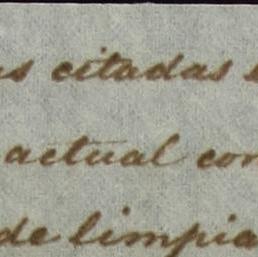 citadas
actual con
de limpia